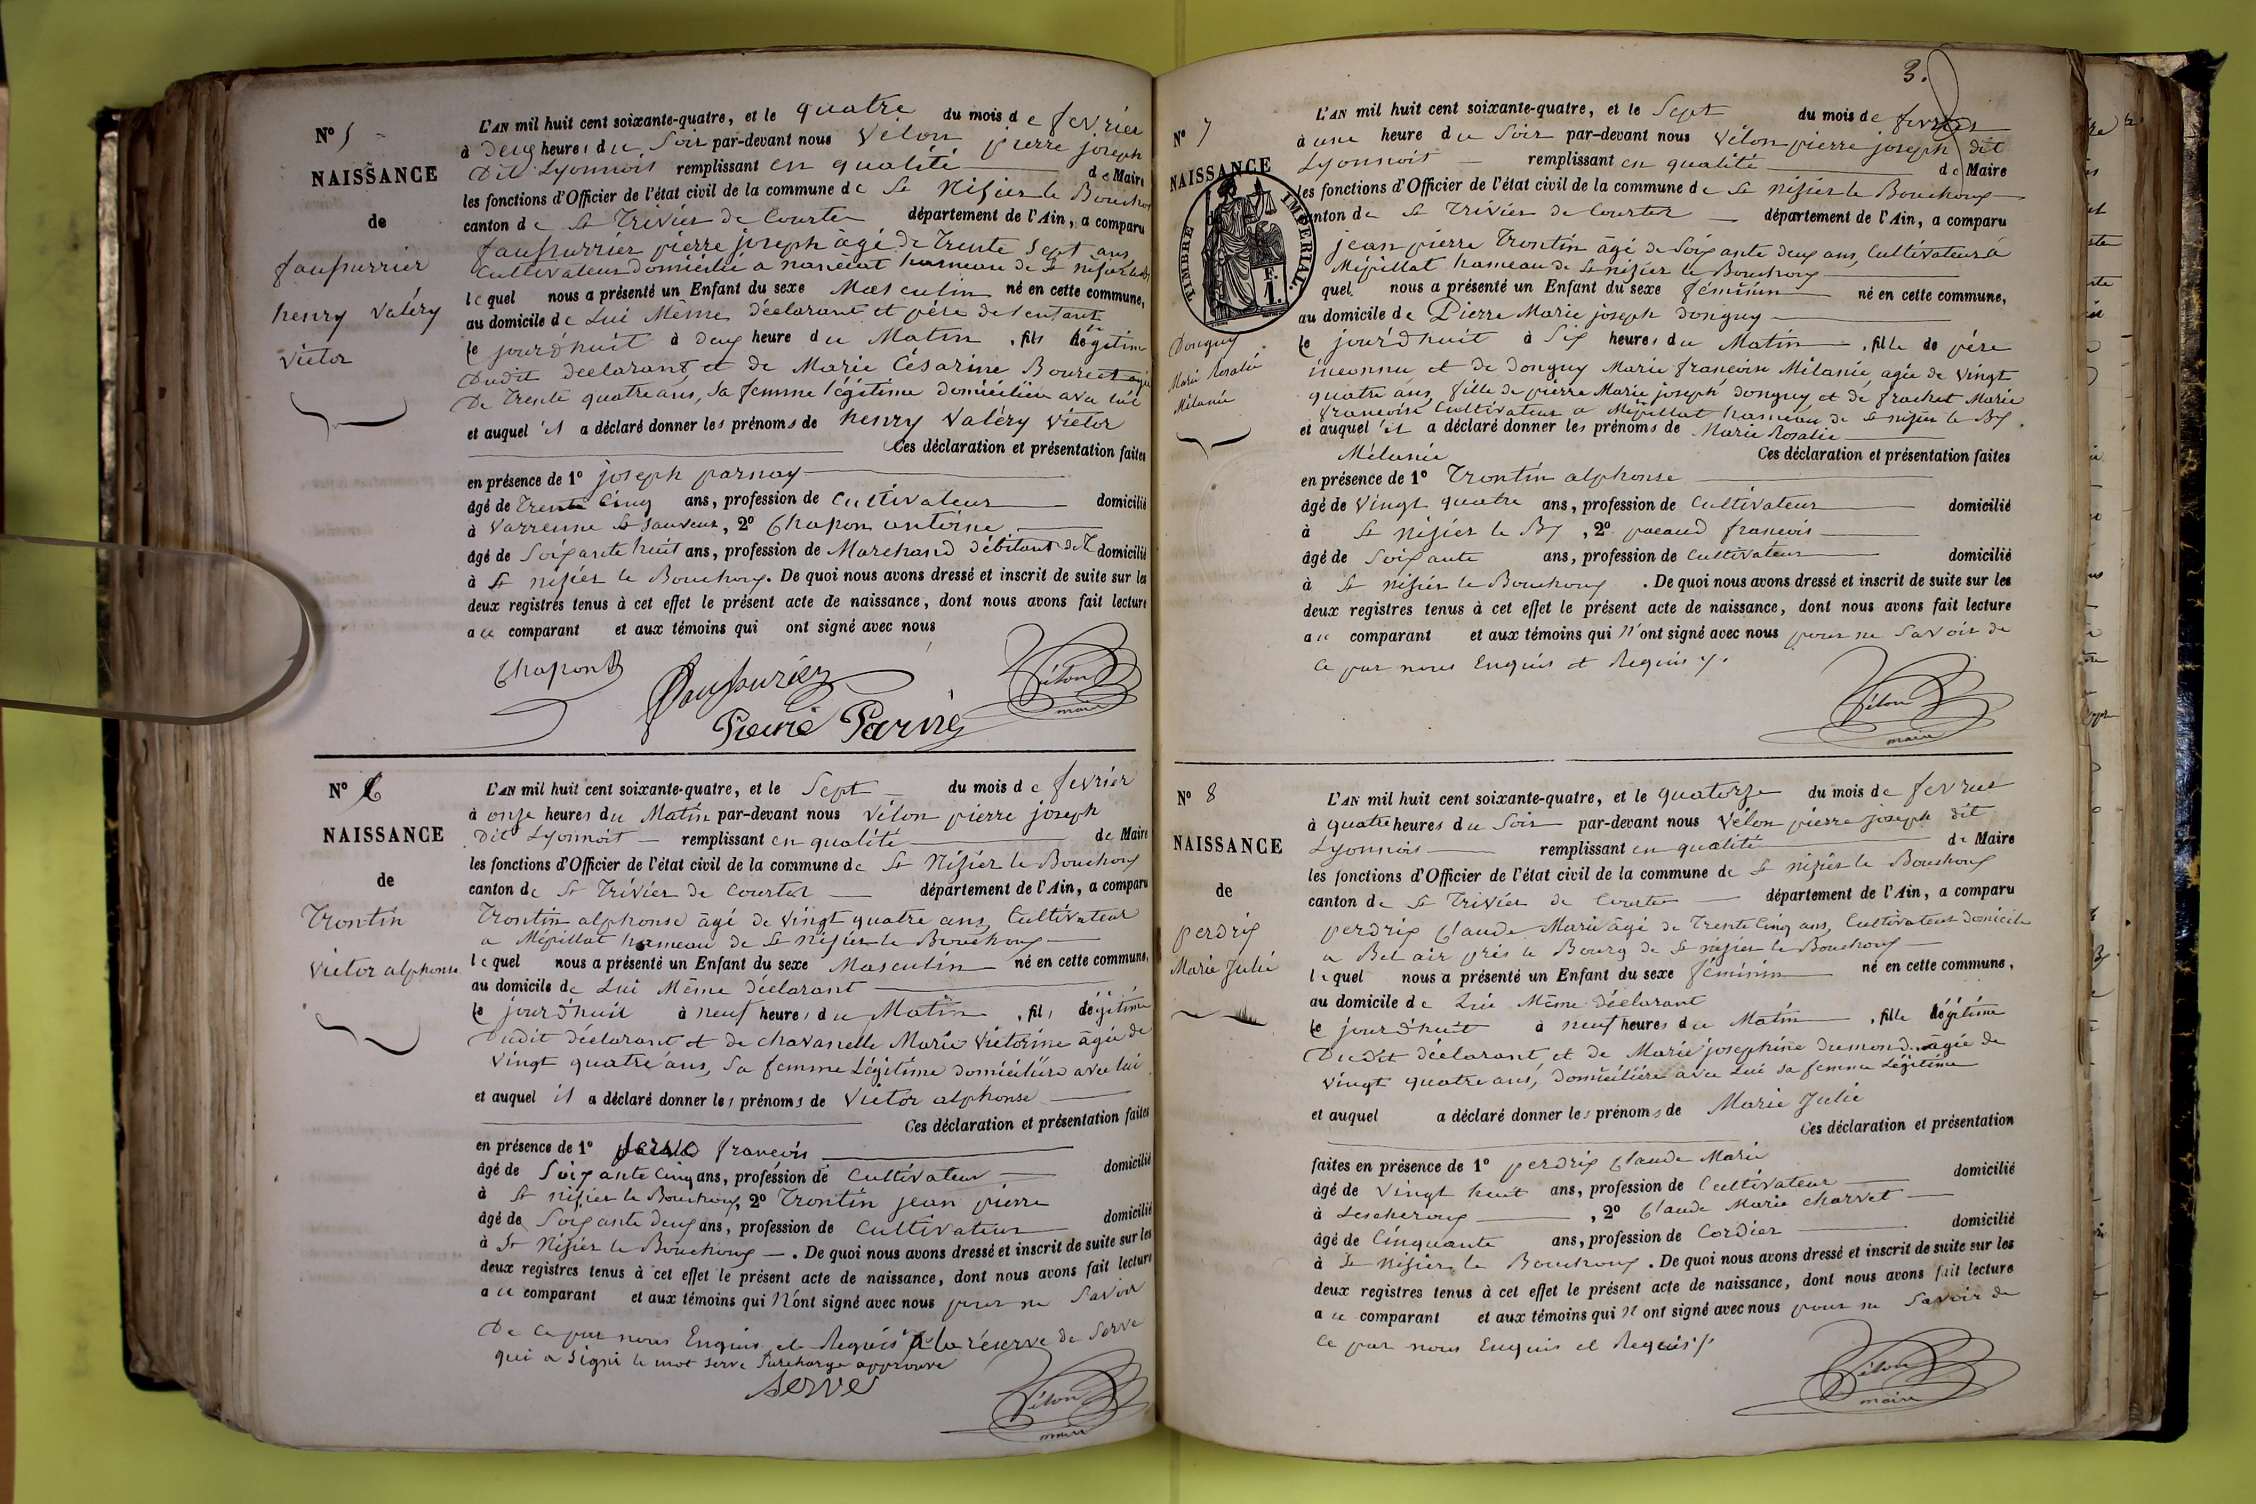 N° 5
NAISSANCE
de
faussurrier
henry Valéry
Victor
L'AN mil huit cent soixante-quatre, et le quatre du mois de fevrier
à deux heures du Soir par-devant nous Vélon pierre joseph
dit Lyonnois remplissant en qualité de Maire
les fonctions d'Officier de l'état civil de la commune de St Nisier le Bouchoux
canton de St Trivier de Courtes département de l'Ain, a comparu
faussurrier pierre joseph âgé de Trente Sept ans
Cultivateur domicilié a hameau de St nisier le
lequel nous a présenté un Enfant du sexe Masculin né en cette commune,
au domicile de Lui Même déclarant et père de l'enfant
le jourd'huit à deux heure du Matin , fils légitime
Dudit déclarant et de Marie Césarine Bouret agée
De Trente quatre ans, Sa femme légitime domiciliée avec lui
et auquel il a déclaré donner les prénoms de henry Valéry Victor
Ces déclaration et présentation faites
en présence de 1° joseph parnay
âgé de Trente Cinq ans, profession de Cultivateur domicilié
à Varrenne St Sauveur, 2° Chapon antoine
âgé de Soixante huit ans, profession de Marchand débitant de T domicilié
à St nisier le Bouchoux. De quoi nous avons dressé et inscrit de suite sur les
deux registres tenus à cet effet le présent acte de naissance, dont nous avons fait lecture
a ce comparant et aux témoins qui ont signé avec nous
Chapon
Faussurier
Vélon
maire
Pierre Parné
N° 6
NAISSANCE
de
Trontin
Victor alphonse
L'AN mil huit cent soixante-quatre, et le Sept du mois de fevrier
à onze heures du Matin par-devant nous Vélon pierre joseph
Dit Lyonnoit remplissant en qualité de Maire
les fonctions d'Officier de l'état civil de la commune de St Nisier le Bouchoux
canton de St Trivier de Courtes département de l'Ain, a comparu
Trontin alphonse âgé de vingt quatre ans, Cultivateur
a Mépillat hameau de St nisier le Bouchoux
lequel nous a présenté un Enfant du sexe Masculin né en cette commune,
au domicile de Lui Même déclarant
le jourd'huit à neuf heures du Matin , fils légitime
Dudit déclarant et de chavanelle Marie Victorine âgée de
Vingt quatre ans, Sa femme Légitime domiciliée avec lui
et auquel il a déclaré donner les prénoms de Victor alphonse
Ces déclaration et présentation faites
en présence de 1° Serve francois
âgé de Soixante Cinq ans, profession de Cultivateur domicilié
à St nisier le Bouchoux, 2° Trontin jean pierre
âgé de Soixante deux ans, profession de Cultivateur domicilié
à St Nisier le Bouchoux. De quoi nous avons dressé et inscrit de suite sur les
deux registres tenus à cet effet le présent acte de naissance, dont nous avons fait lecture
a ce comparant et aux témoins qui N'ont signé avec nous pour ne Savoir
De ce par nous Enquis et Requis à la réserve de Serve
qui a Signé le mot serve Surcharge approuvé
serve
Vélon
maire
3.
N° 7
NAISSANCE
TIMBRE IMPÉRIAL
F.
1.
Donguy
Marie Rosalie
Mélanie
L'AN mil huit cent soixante-quatre, et le Sept du mois de fevrier
à une heure du Soir par-devant nous Vélon pierre joseph dit
Lyonnoit remplissant en qualité de Maire
les fonctions d'Officier de l'état civil de la commune de St nisier le Bouchoux
canton de St Trivier de Courtes département de l'Ain, a comparu
jean pierre Trontin âgé de Soixante deux ans, Cultivateur à
Mépillat hameau de St nisier le Bouchoux
quel nous a présenté un Enfant du sexe féminin né en cette commune,
au domicile de Pierre Marie joseph donguy
le jourd'huit à Six heures du Matin , fille de père
inconnu et de donguy Marie francoise Mélanie, agée de vingt
quatre ans, fille de pierre Marie joseph donguy et de frachet Marie
francoise Cultivateur a Mépillat hameau de St nisier le Bx
et auquel il a déclaré donner les prénoms de Marie Rosalie
Mélanie Ces déclaration et présentation faites
en présence de 1° Trontin alphonse
âgé de Vingt quatre ans, profession de Cultivateur domicilié
à St nisier le Bx, 2° pacaud francois
âgé de Soixante ans, profession de Cultivateur domicilié
à St nisier le Bouchoux. De quoi nous avons dressé et inscrit de suite sur les
deux registres tenus à cet effet le présent acte de naissance, dont nous avons fait lecture
a ce comparant et aux témoins qui N'ont signé avec nous pour ne Savoir de
ce par nous Enquis et Requis
Vélon
maire
N° 8
NAISSANCE
de
perdrix
Marie Julie
L'AN mil huit cent soixante-quatre, et le quatorze du mois de fevrier
à quatre heures du Soir par-devant nous Vélon pierre joseph dit
Lyonnois remplissant en qualité de Maire
les fonctions d'Officier de l'état civil de la commune de St nisier le Bouchoux
canton de St Trivier de Courtes département de l'Ain, a comparu
perdrix Claude Marie âgé de Trente Cinq ans, Cultivateur domicile
a Bel air près le Bourg de St nisier le Bouchoux
lequel nous a présenté un Enfant du sexe féminin né en cette commune,
au domicile de Lui Même déclarant
le jourd'huit à neuf heures du Matin , fille légitime
Dudit déclarant et de Marie josephine dumond agée de
vingt quatre ans, domiciliée avec Lui sa femme Légitime
et auquel a déclaré donner les prénoms de Marie Julie
Ces déclaration et présentation
faites en présence de 1° perdrix Claude Marie
âgé de vingt huit ans, profession de Cultivateur domicilié
à Lescheroux, 2° Claude Marie Charvet
âgé de Cinquante ans, profession de Cordier domicilié
à St nisier le Bouchoux. De quoi nous avons dressé et inscrit de suite sur les
deux registres tenus à cet effet le présent acte de naissance, dont nous avons fait lecture
a ce comparant et aux témoins qui N'ont signé avec nous pour ne Savoir de
ce par nous Enquis et Requis
Vélon
maire